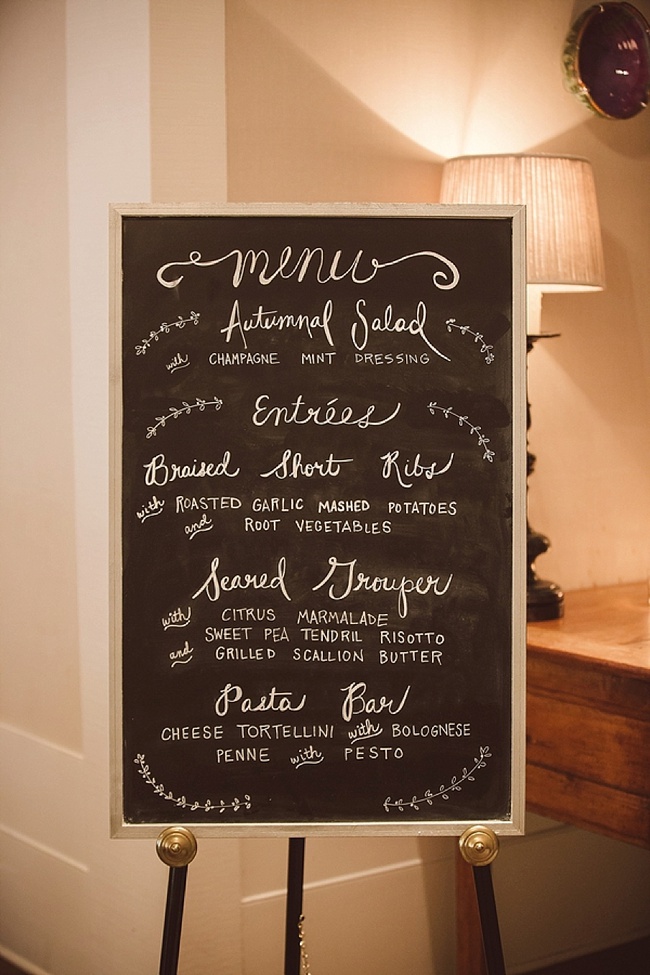 menu
Autumnal Salad
with CHAMPAGNE MINT DRESSING
Entrées
Braised Short Ribs
with ROASTED GARLIC MASHED POTATOES
and ROOT VEGETABLES
Seared Grouper
with CITRUS MARMALADE
SWEET PEA TENDRIL RISOTTO
and GRILLED SCALLION BUTTER
Pasta Bar
CHEESE TORTELLINI with BOLOGNESE
PENNE with PESTO